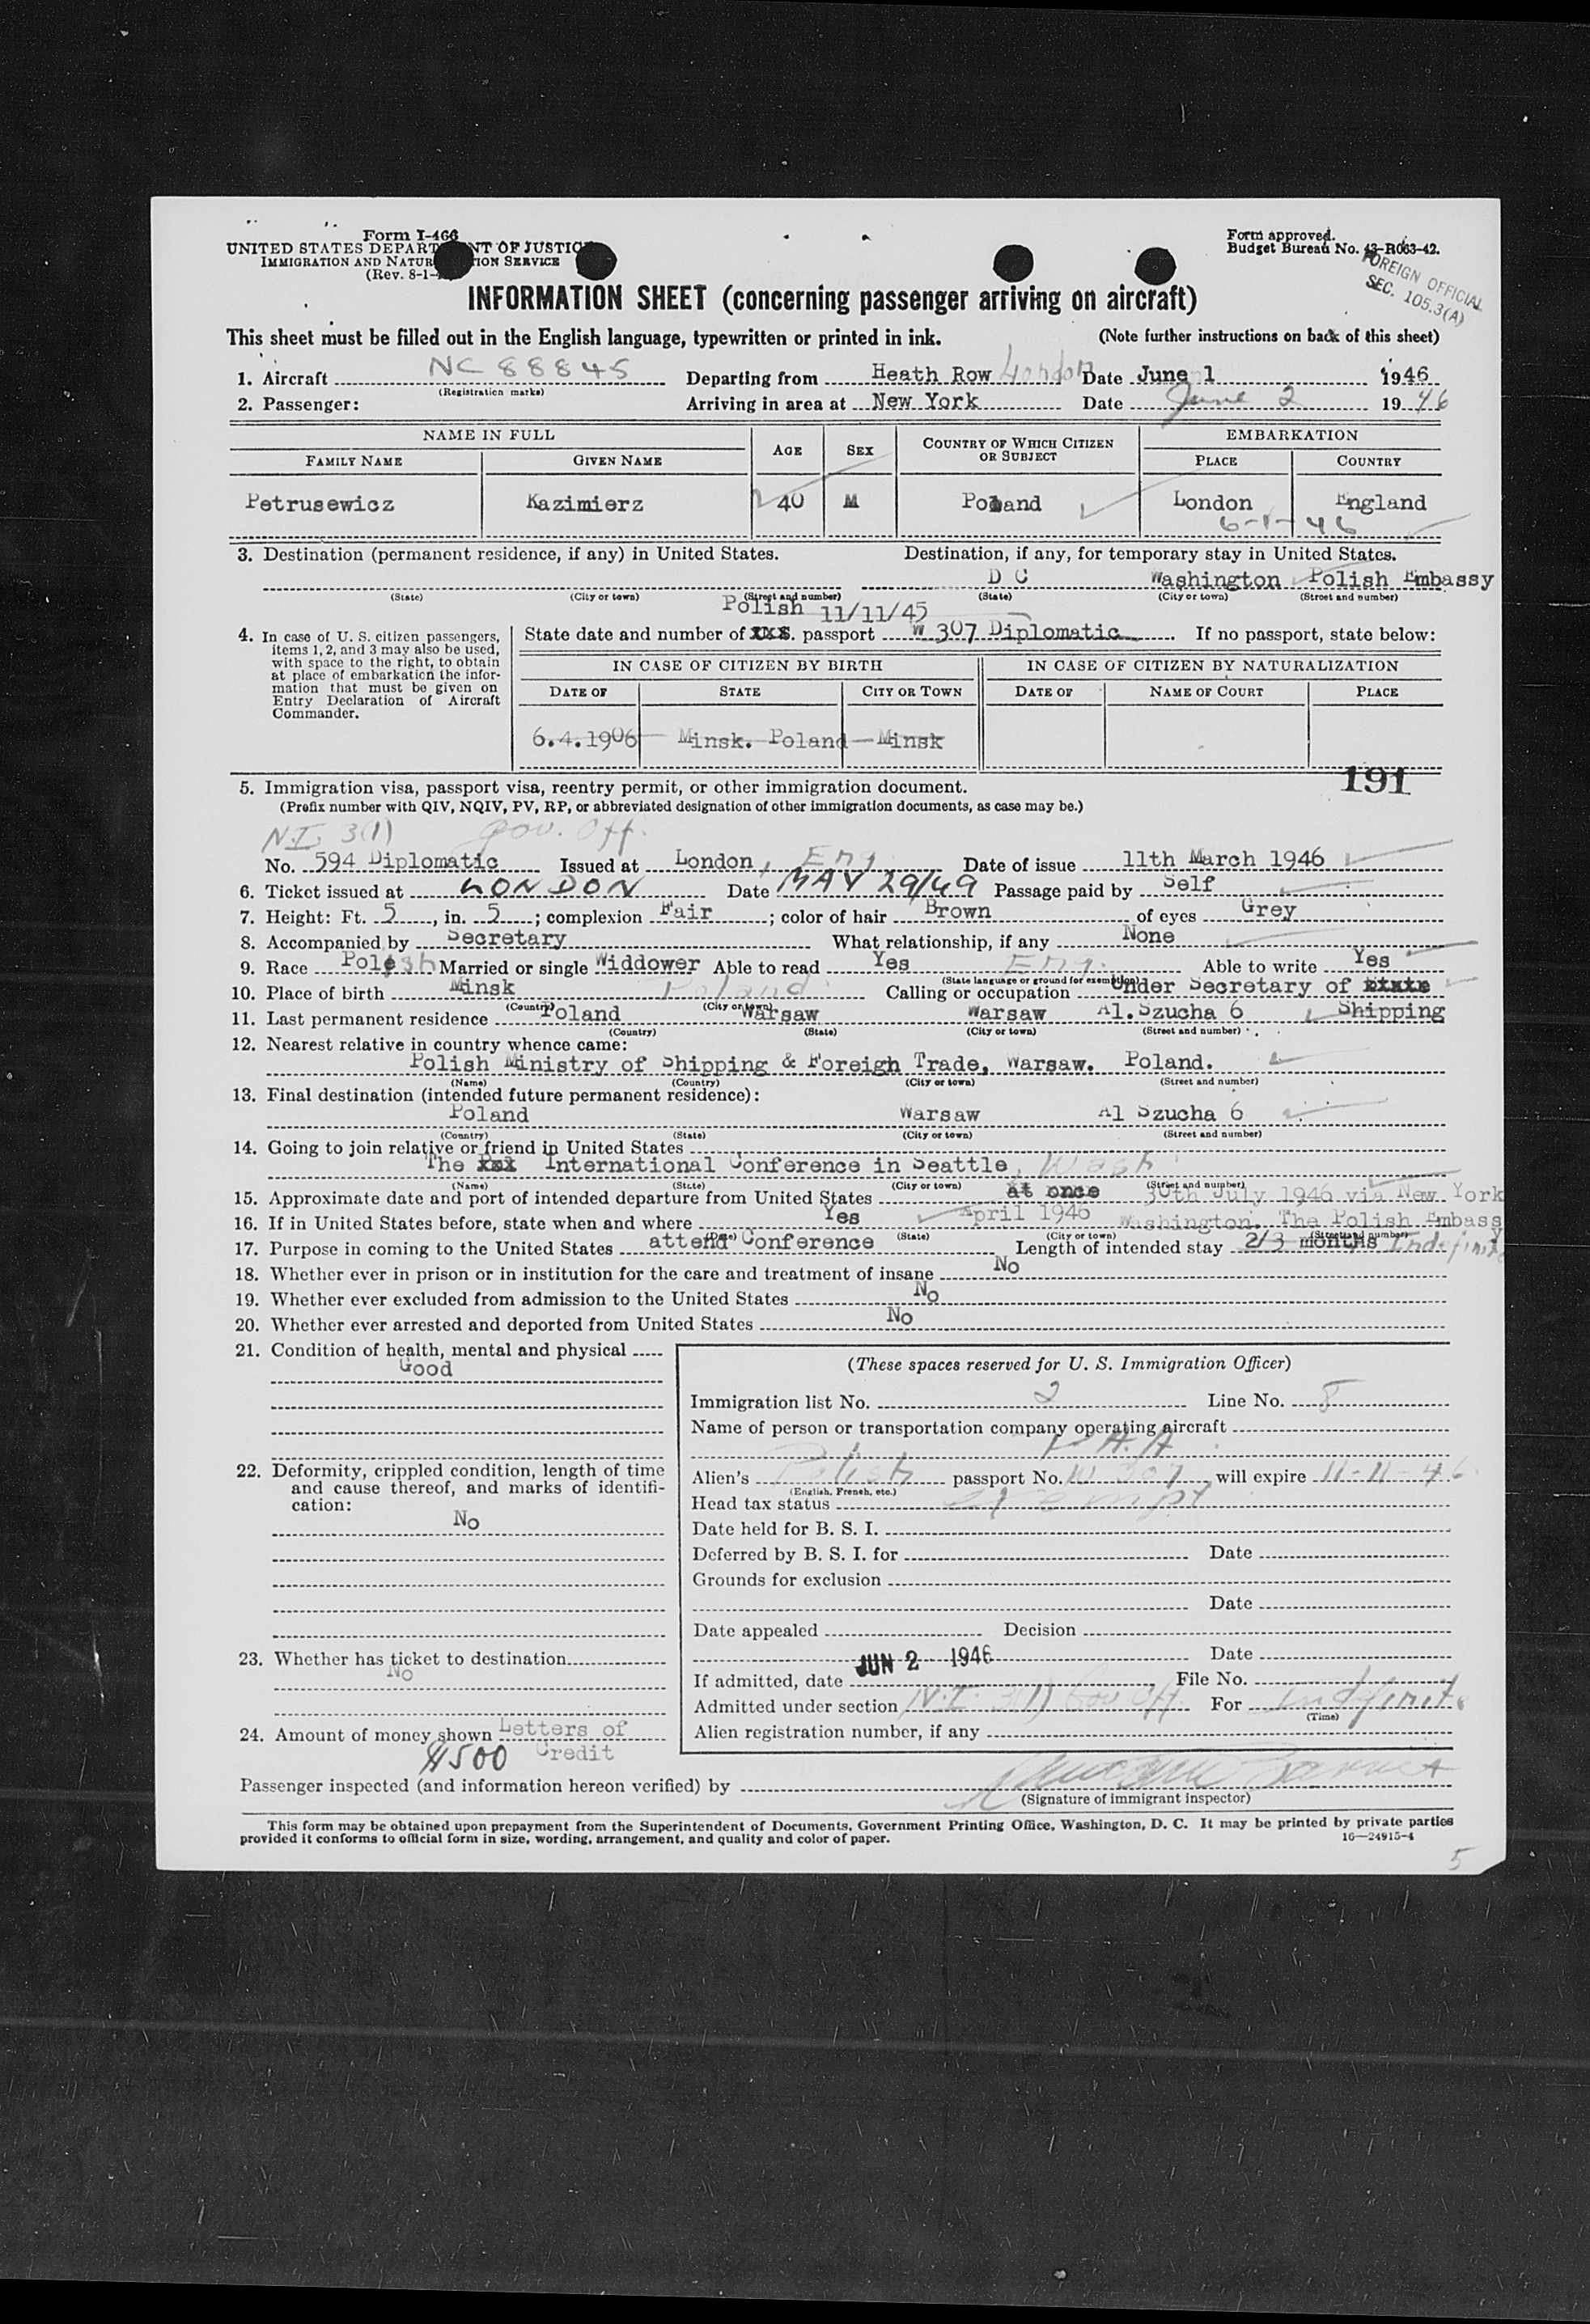 Form I-466
UNITED STATES DEPART NT OF JUSTIC
IMMIGRATION AND NATUR TION SERVICE
(Rev. 8-1-
Form approved.
Budget Bureau No. 43-R063-42.
FOREIGN OFFICIAL
SEC. 105.3(A)
INFORMATION SHEET (concerning passenger arriving on aircraft)
This sheet must be filled out in the English language, typewritten or printed in ink. (Note further instructions on back of this sheet)
1. Aircraft NC 88845 Departing from Heath Row London Date June 1 1946
(Registration marks)
2. Passenger: Arriving in area at New York Date June 2 1946
NAME IN FULL AGE SEX COUNTRY OF WHICH CITIZEN OR SUBJECT EMBARKATION
FAMILY NAME GIVEN NAME PLACE COUNTRY
Petrusewicz Kazimierz 40 M Poland London England
6-1-46
3. Destination (permanent residence, if any) in United States. Destination, if any, for temporary stay in United States.
D C Washington Polish Embassy
(State) (City or town) (Street and number) (State) (City or town) (Street and number)
Polish 11/11/45
4. In case of U. S. citizen passengers, items 1, 2, and 3 may also be used, with space to the right, to obtain at place of embarkation the information that must be given on Entry Declaration of Aircraft Commander.
State date and number of XXS. passport W 307 Diplomatic If no passport, state below:
IN CASE OF CITIZEN BY BIRTH IN CASE OF CITIZEN BY NATURALIZATION
DATE OF STATE CITY OR TOWN DATE OF NAME OF COURT PLACE
6.4.1906 Minsk. Poland Minsk
191
5. Immigration visa, passport visa, reentry permit, or other immigration document.
(Prefix number with QIV, NQIV, PV, RP, or abbreviated designation of other immigration documents, as case may be.)
N.I. 3(1) gov. Off.
No. 594 Diplomatic Issued at London, Eng. Date of issue 11th March 1946
6. Ticket issued at LONDON Date MAY 29/49 Passage paid by Self
7. Height: Ft. 5, in. 5; complexion Fair; color of hair Brown of eyes Grey
8. Accompanied by Secretary What relationship, if any None
9. Race Polish Married or single Widdower Able to read Yes Eng. Able to write Yes
(State language or ground for exemption)
10. Place of birth Minsk Poland Calling or occupation Under Secretary of State
(Country) (City or town)
11. Last permanent residence Poland Warsaw Warsaw Al. Szucha 6 Shipping
(Country) (State) (City or town) (Street and number)
12. Nearest relative in country whence came:
Polish Ministry of Shipping & Foreigh Trade, Warsaw. Poland.
(Name) (Country) (City or town) (Street and number)
13. Final destination (intended future permanent residence):
Poland Warsaw Al Szucha 6
(Country) (State) (City or town) (Street and number)
14. Going to join relative or friend in United States
The International Conference in Seattle, Wash
(Name) (State) (City or town) (Street and number)
15. Approximate date and port of intended departure from United States at once 30th July 1946 via New York
16. If in United States before, state when and where Yes April 1946 Washington. The Polish Embassy
(Date) (State) (City or town) (Street and number)
17. Purpose in coming to the United States attend Conference Length of intended stay 2/3 months Indefinite
18. Whether ever in prison or in institution for the care and treatment of insane No
19. Whether ever excluded from admission to the United States No
20. Whether ever arrested and deported from United States No
21. Condition of health, mental and physical
Good
22. Deformity, crippled condition, length of time and cause thereof, and marks of identification:
No
23. Whether has ticket to destination
No
24. Amount of money shown Letters of Credit
$500
(These spaces reserved for U. S. Immigration Officer)
Immigration list No. 2 Line No. 8
Name of person or transportation company operating aircraft
P.A.A
Alien's Polish passport No. W 307 will expire 11-11-46
(English, French, etc.)
Head tax status exempt
Date held for B. S. I.
Deferred by B. S. I. for Date
Grounds for exclusion
Date
Date appealed Decision
Date
If admitted, date JUN 2 1946 File No.
Admitted under section N.I. 3(1) Gov Off. For indefinite
(Time)
Alien registration number, if any
Passenger inspected (and information hereon verified) by
(Signature of immigrant inspector)
This form may be obtained upon prepayment from the Superintendent of Documents, Government Printing Office, Washington, D. C. It may be printed by private parties
provided it conforms to official form in size, wording, arrangement, and quality and color of paper. 16—24915-4
5